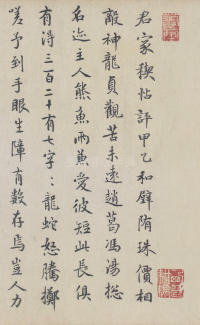 君家禊帖評甲乙和璧隋珠價相
敵神龍貞觀苦未遠趙葛馮湯總
名迹主人熊魚兩兼愛彼短此長俱
有得三百二十有七字〻龍蛇怒騰擲
嗟予到手眼生障有數存焉豈人力